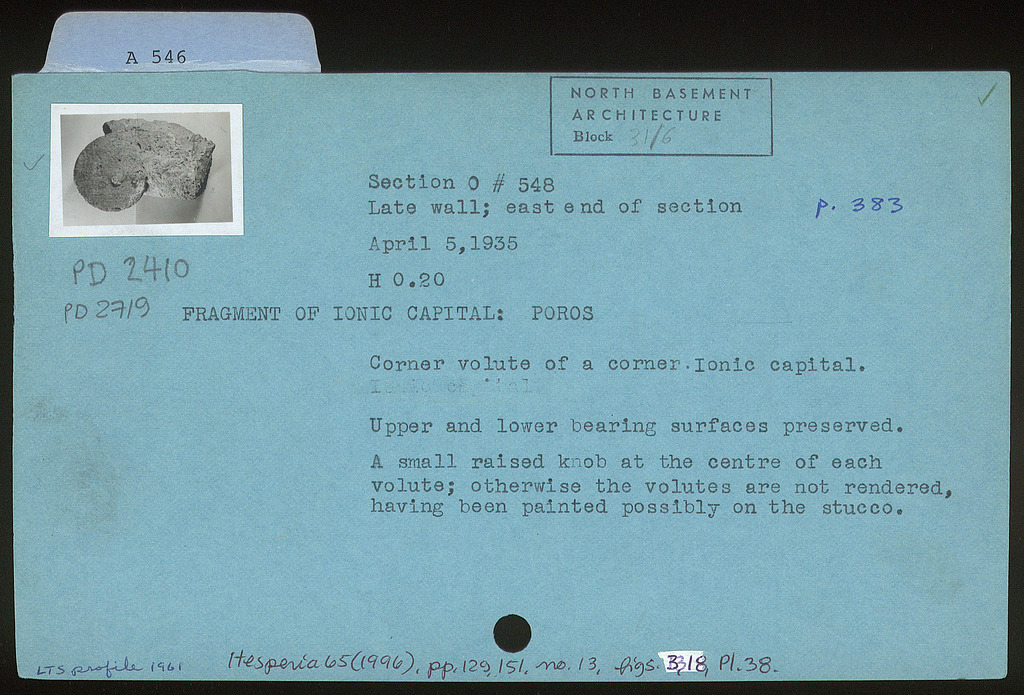 A 546
NORTH BASEMENT
ARCHITECTURE
Block 31/6
Section O # 548
Late wall; east end of section p. 383
April 5,1935
H 0.20
PD 2410
PD 2719
FRAGMENT OF IONIC CAPITAL: POROS
Corner volute of a corner Ionic capital.
Upper and lower bearing surfaces preserved.
A small raised knob at the centre of each
volute; otherwise the volutes are not rendered,
having been painted possibly on the stucco.
LTS profile 1961
Hesperia 65(1996), pp.129, 151, no. 13, figs. 3, 18, Pl. 38.